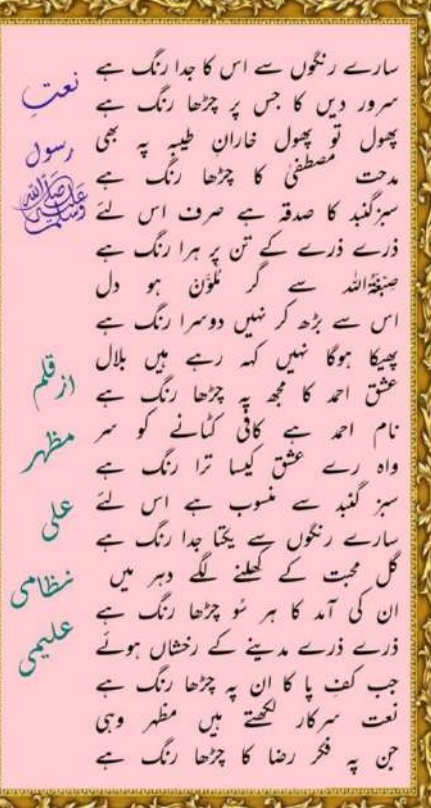 نعتِ
رسول
صلى الله عليه وسلم
سارے رنگوں سے اس کا جدا رنگ ہے
سرور دیں کا جس پر چڑھا رنگ ہے
پھول تو پھول خاران طیبہ پہ بھی
مدحت مصطفیٰ کا چڑھا رنگ ہے
سبز گنبد کا صدقہ ہے صرف اس لئے
ذرے ذرے کے تن پر ہرا رنگ ہے
صِبْغَۃُاللہ سے گر مُلَوَّن ہو دل
اس سے بڑھ کر نہیں دوسرا رنگ ہے
پھیکا ہوگا نہیں کہہ رہے ہیں بلال
عشق احمد کا مجھ پہ چڑھا رنگ ہے
نام احمد ہے کافی کٹانے کو سر
واہ رے عشق کیسا ترا رنگ ہے
سبز گنبد سے منسوب ہے اس لئے
سارے رنگوں سے یکتا جدا رنگ ہے
گل محبت کے کھلنے لگے دہر میں
ان کی آمد کا ہر سُو چڑھا رنگ ہے
ذرے ذرے مدینے کے رخشاں ہوئے
جب کف پا کا ان پہ چڑھا رنگ ہے
نعت سرکار لکھتے ہیں مظہر وہی
جن پہ فکر رضا کا چڑھا رنگ ہے
از قلم
مظہر
علی
نظامی
علیمی